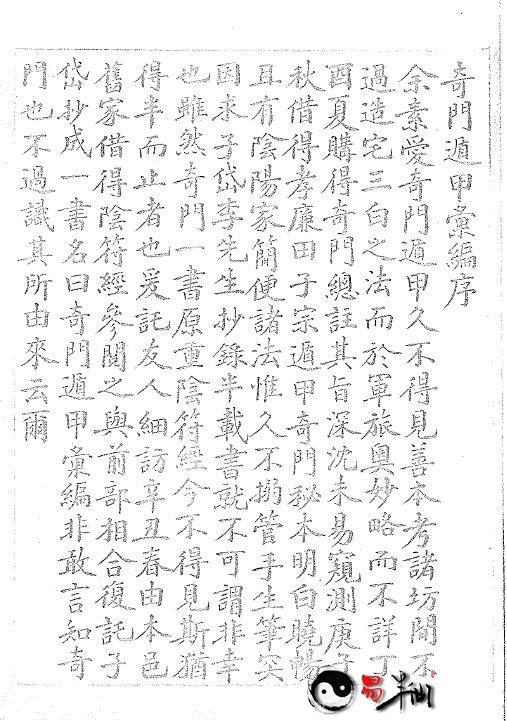 奇門遁甲彙編序
余素愛奇門遁甲久不得見善本考諸坊間不
過造宅三白之法而於軍旅奧妙略而不詳丁
酉夏購得奇門總註其旨深沈未易窺測庚子
秋借得孝廉田子宗遁甲奇門秘本明白曉暢
且有陰陽家簡便諸法惟久不搦管手生筆突
因求子岱李先生抄錄半載書就不可謂非幸
也雖然奇門一書原重陰符經今不得見斯猶
得半而止者也爰託友人細訪辛丑春由本邑
舊家借得陰符經參閱之與前部相合復託子
岱抄成一書名曰奇門遁甲彙編非敢言知奇
門也不過識其所由來云爾
易半仙